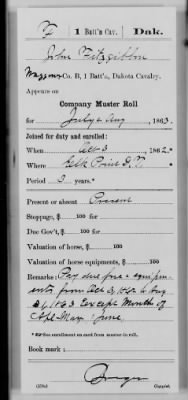 F | 1 Batt'n Cav. | Dak.
John Fitzgibbon
Wagoner, Co. B, 1 Batt'n, Dakota Cavalry.
Appears on
Company Muster Roll
for July & Aug, 1863.
Joined for duty and enrolled:
When Oct 3, 1862.*
Where Elk Point D.T.
Period 3 years.*
Present or absent Present
Stoppage, $ 100 for
Due Gov't, $ 100 for
Valuation of horse, $ 100
Valuation of horse equipments, $ 100
Remarks: Pay due for equipments
from Oct 3, 1862 to Aug
31, 1863 Except Months of
Apl May & June
*See enrollment on card from muster-in roll.
Book mark:
Copyist.